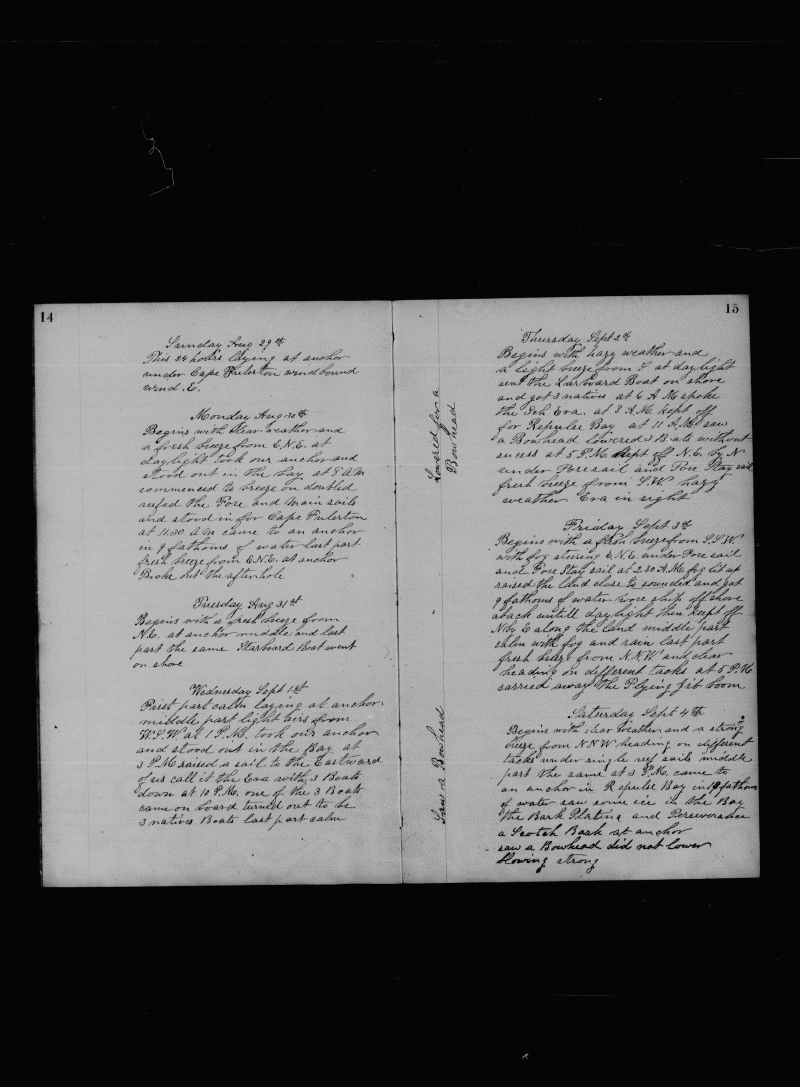 14
Sunday Aug 29th
This 24 hours laying at anchor
under Cape Fulerton windbound
wind E.
Monday Aug 30th
Begins with clear weather and
a fresh breeze from E.N.E. at
daylight took our anchor and
stood out in the bay at 8 A M
commenced to breeze on doubled
reefed the Fore and main sails
and stood in for Cape Fulerton
at 11.30 A M came to an anchor
in 9 fathoms of water last part
fresh breeze from E.N.E. at anchor
Broke out the afterhole
Tuesday Aug 31st
Begins with a fresh breeze from
N.E. at anchor middle and last
part the same Starboard Boat went
on shore
Wednesday Sept 1st
First part calm laying at anchor
middle part light airs from
W.S.W at 1 P.M. took our anchor
and stood out in the Bay at
3 P.M raised a sail to the Eastward
of us call it the Era with 3 Boats
down at 10 P.M. one of the 3 Boats
came on board turned out to be
3 natives Boats last part calm
15
Thursday Sept 2th
Begins with hazy weather and
a light breeze from S at daylight
sent the Larboard Boat on shore
and got 3 natives at 6 A M spoke
the Sch Era. at 8 A.M. kept off
for Repulse Bay at 11 A.M. saw
a Bowhead lowered 3 Boats without
sucess at 5 P.M. kept off N.E. by N
under Foresail and Fore Stay sail
fresh breeze from S.W hazy
weather Era in sight
Lowered for a
Bowhead
Friday Sept 3th
Begins with a fresh breeze from S.S.W
with fog stering E.N.E. under Fore sail
and Fore Stay sail at 2.30 A.M. fog lit up
raised the land close to sounded and got
9 fathoms of water wore ship off shore
aback untill daylight then kept off
N by E along the land middle part
calm with fog and rain last part
fresh breeze from N.N.W and clear
heading on different tacks at 5 P.M
carried away the Flying Jib boom
Saturday Sept 4th
Begins with clear weather and a strong
breeze from N N W heading on different
tacks under single reef sails middle
part the same at 3 P.M. came to
an anchor in Repulse Bay in 19 fathom
of water saw some ice in the Bay
the Bark Platina and Perseverance
a Scotch Bark at anchor
saw a Bowhead did not lower
blowing strong
Saw a Bowhead